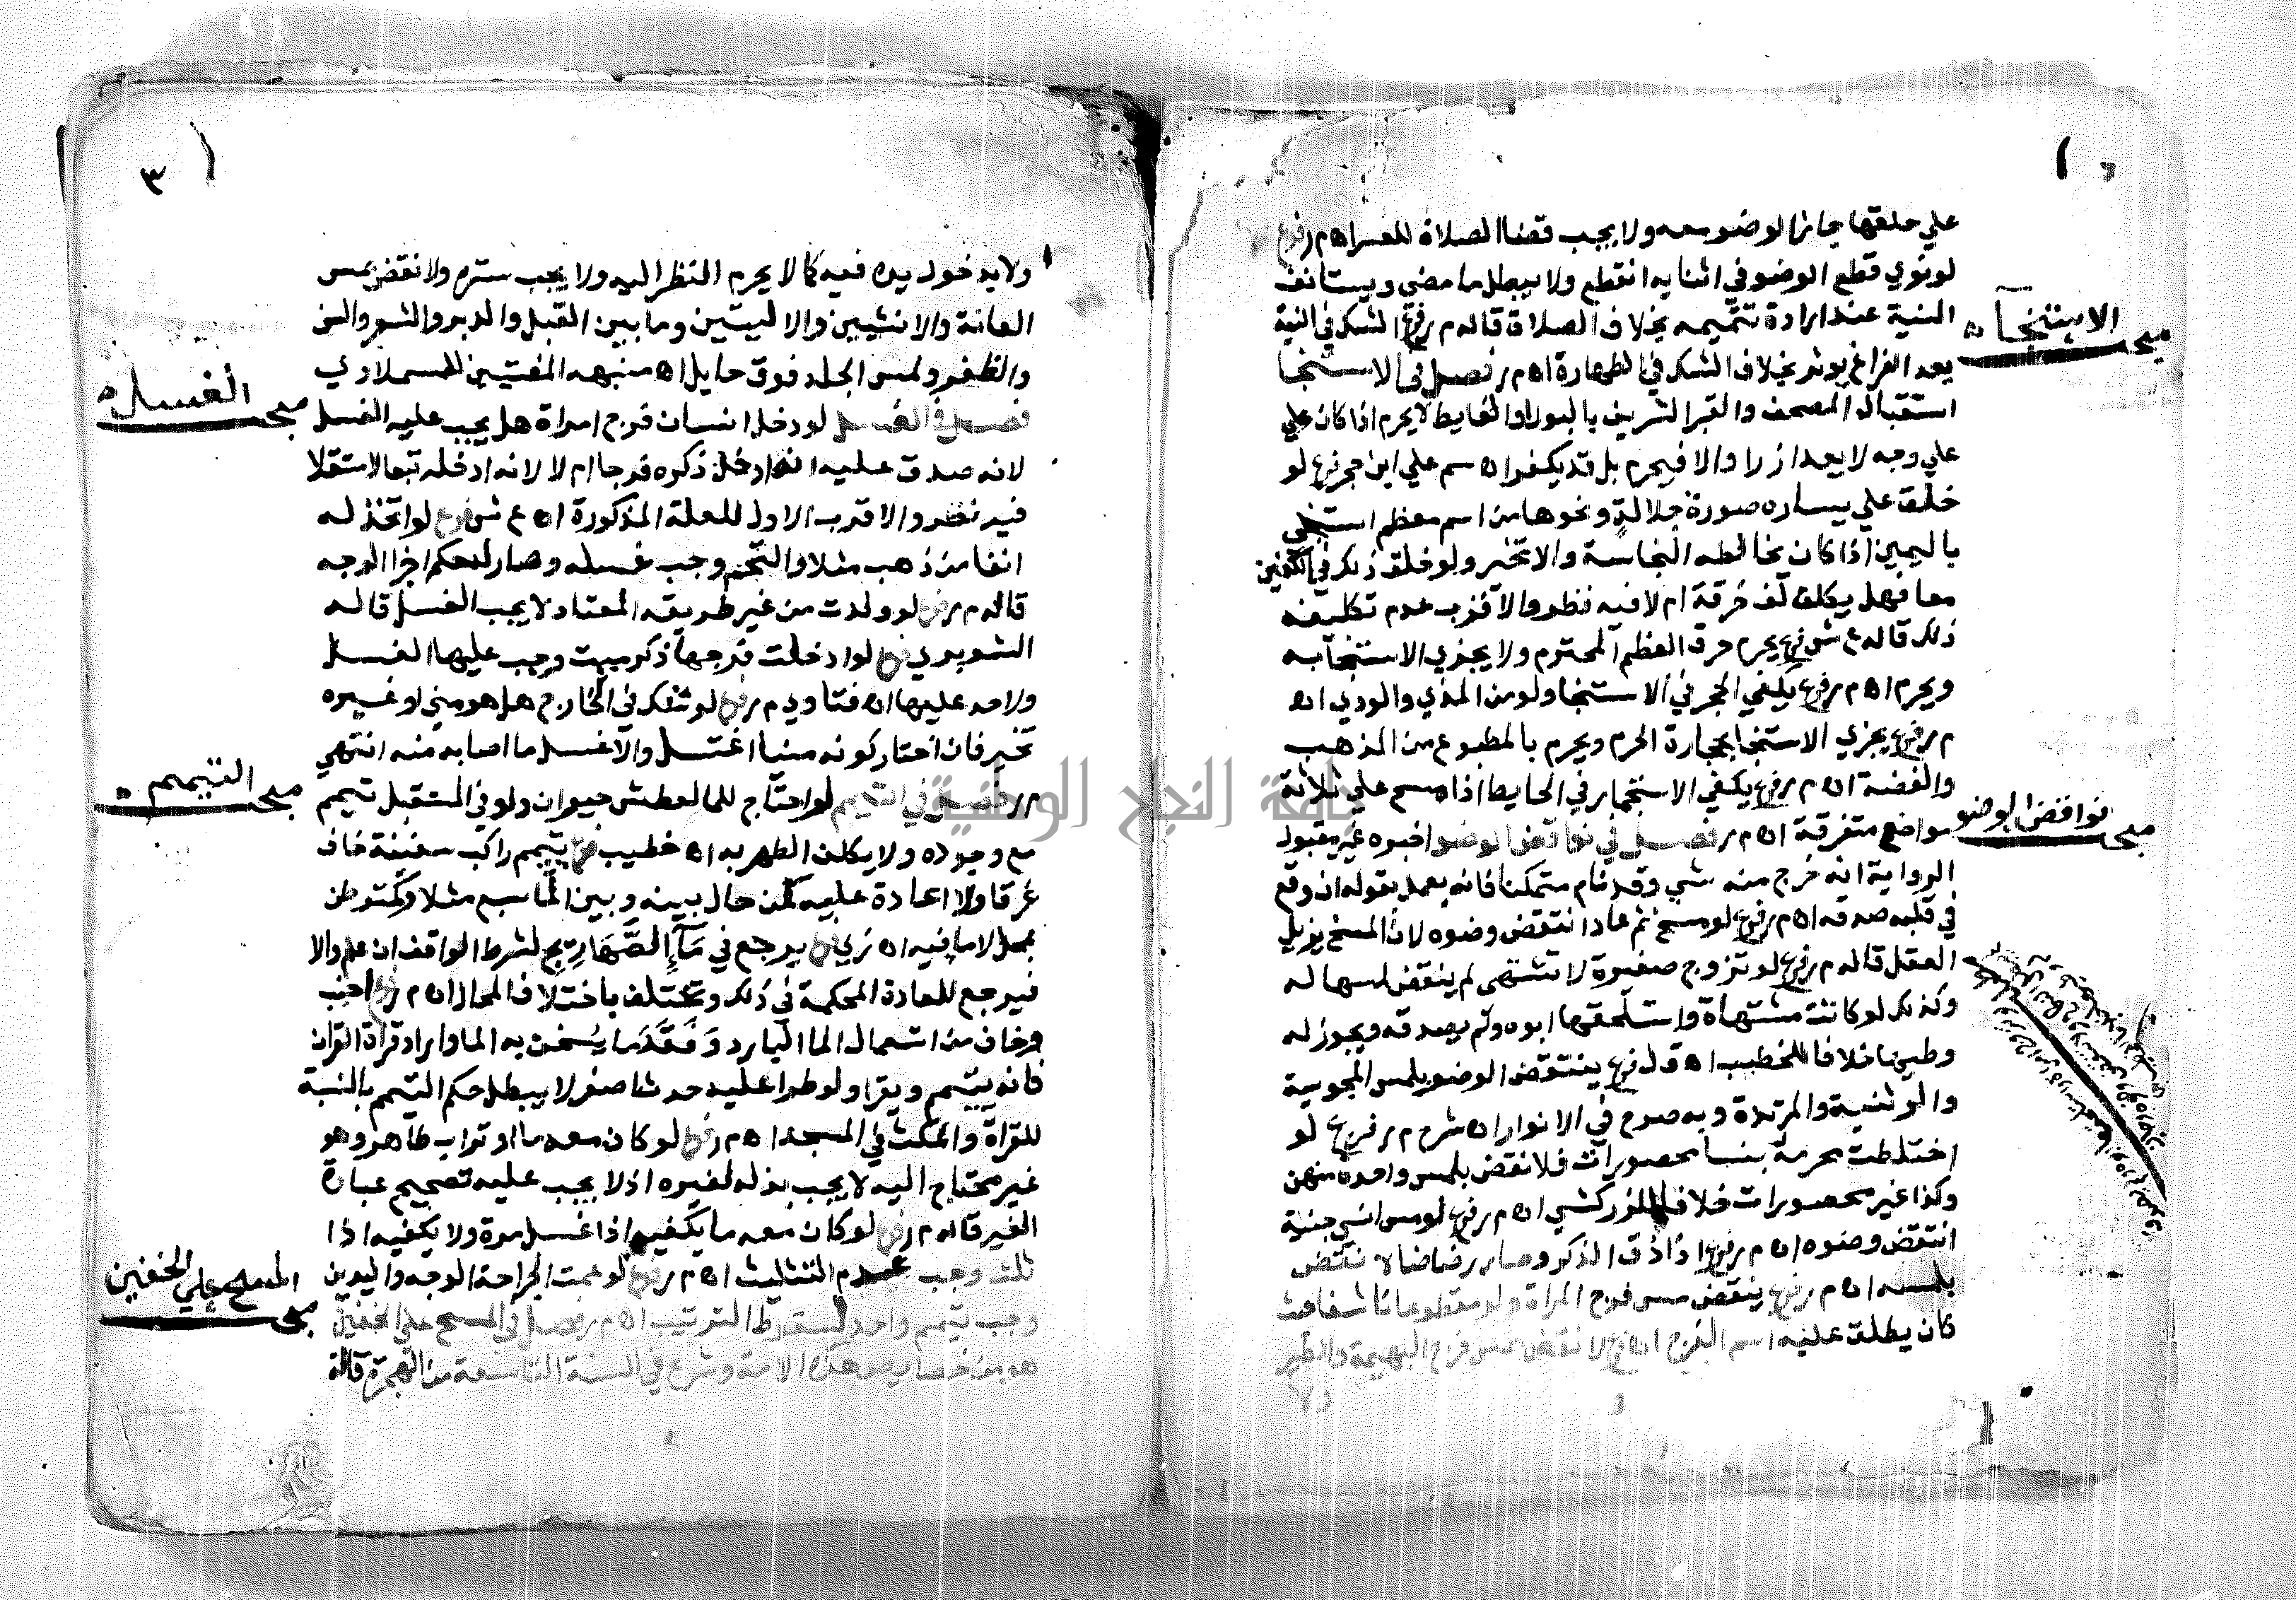 علي حلقها جاز الوضو معه ولا يجب قضا الصلاة للعسر اه م ر فرع
لو نوي قطع الوضو في اثنايه انقطع ولا يبطل ما مضى ويستانف
النية عند ارادة تتميمه بخلاف الصلاة قاله م ر فرع الشك في النية
بعد الفراغ يوثر بخلاف الشك في الطهارة اه م ر فصل في الاستنجا
استقبال المصحف والقبر الشريف بالبول او الغايط لا يحرم اذا كان علي
علي وجه لا يعد ازرا والا فيحرم بل قد يكفر اه سم علي ابن حجر فرع لو
خلق علي يساره صورة جلالة ونحوها من اسم معظم استنجي
باليمين اذا كان تخالطه النجاسة والا تخير ولو خلق ذلك في الكفين
معا فهل يكلف لف خرقة ام لا فيه نظر والاقرب عدم تكليفه
ذلك قاله ع ش فرع يحرم حرق العظم المحترم ولا يجزي الاستنجا به
ويحرم اه م ر فرع يكفي الحجر في الاستنجا ولو من المذي والودي اه
م ر فرع يجزي الاستنجا بحجارة الحرم ويحرم بالمطبوع من الذهب
والفضة اه م ر فرع يكفي الاستجمار في الحايط اذا مسح علي ثلاثة
مواضع متفرقة اه م ر فصل في نواقض الوضو اخبره غير مقبول
الرواية انه خرج منه شي وقد نام متمكنا فانه يعمل بقوله ان وقع
في قلبه صدقه اه م ر فرع لو مسخ ثم عاد انتقض وضوه لان المسخ يزيل
العقل قاله م ر فرع لو تزوج صغيرة لا تشتهى لم ينقض لمسها له
وكذلك لو كانت مشتهاة واستلحقها ابوه ولم يصدقه ويجوز له
وطيها خلافا للخطيب اه ق ل فرع ينتقض الوضو بلمس المجوسية
والوثنية والمرتدة وبه صرح في الانوار اه شرح م ر فرع لو
اختلطت محرمة بنسا محصورات فلا نقض بلمس واحدة منهن
وكذا غير محصورات خلافا للزركشي اه م ر فرع لو مس انسي جنية
انتقض وضوه اه م ر فرع اذا دق الذكر وصار رضاضا لا نقض
بلمسه اه م ر فرع ينقض مس فرج المراة ولو مقطوعا ما شفاعت
كان يطلق عليه اسم الفرج اه فرع لا نقض بمس فرج البهيمة والطير
ولا
مبحث الاستنجا
مبحث نواقض الوضو
٣
ولا يد خول يده فيه كما لا يحرم النظر اليه ولا يجب ستره ولا نقض بمس
العانة والانثيين والاليتين وما بين القبل والدبر والشعر والسن
والظفر ولمس الجلد فوق حايل اه منبهه المفتيين للمسملاوي
فصل في الغسل لو دخل انسان فرج امراة هل يجب عليه الغسل
لانه صدق عليه انه ادخل ذكره فرجا ام لا لانه ادخله تبعا لاستقلا
فيه نظر والاقرب الاول للعلة المذكورة اه ع ش فرع لو اتخذ له
انفا من ذهب مثلا والتحم وجب غسله وصار له حكم اجزا الوجه
قاله م ر فرع لو ولدت من غير طريقه المعتاد لا يجب الغسل قاله
الشوبري فرع لو ادخلت فرجها ذكر ميت وجب عليها الغسل
ولا حد عليها اه فتاوي م ر فرع لو شك في الخارج هل هو مني او غيره
تخير فان اختار كونه منيا اغتسل والا غسل ما اصابه منه انتهي
م ر فصل في التيمم لو احتاج للما لعطش حيوان ولو في المستقبل تيمم
مع وجوده ولا يكلف الطهر به اه خطيب فرع تيمم راكب سفينة خاف
غرقا ولا اعادة عليه كمن حال بينه وبين الما سبع مثلا وكمتوطن
بمحل لاما فيه اه زي فرع يرجع في ماء الصهاريج لشرط الواقف ان علم والا
فيرجع للعادة المحكمة في ذلك وتختلف باختلاف المحال اه م ر فرع اجنب
وخاف من استعمال الما البارد وفقد ما يسخن به الما واراد قراة القران
فانه يتيمم ويقرا ولو طرا عليه حدث اصغر لا يبطل حكم التيمم بالنسبة
للقراة والمكث في المسجد اه م ر فرع لو كان معه ما او تراب طاهر وهو
غير محتاج اليه لا يجب بذله لغيره اذ لا يجب عليه تصحيح عبادة
الغير قاله م ر فرع لو كان معه ما يكفيه اذا غسل مرة ولا يكفيه اذا
ثلث وجب عدم التثليث اه م ر فرع لو عمت الجراحة الوجه واليدين
وجب تيمم واحد لسقوط الترتيب اه م ر فصل في المسح علي الخفين
هو من خصايص هذه الامة وشرع في السنة التاسعة من الهجرة قاله
مبحث الغسل
مبحث التيمم
مبحث المسح علي الخفين
جامعة النجاح الوطنية